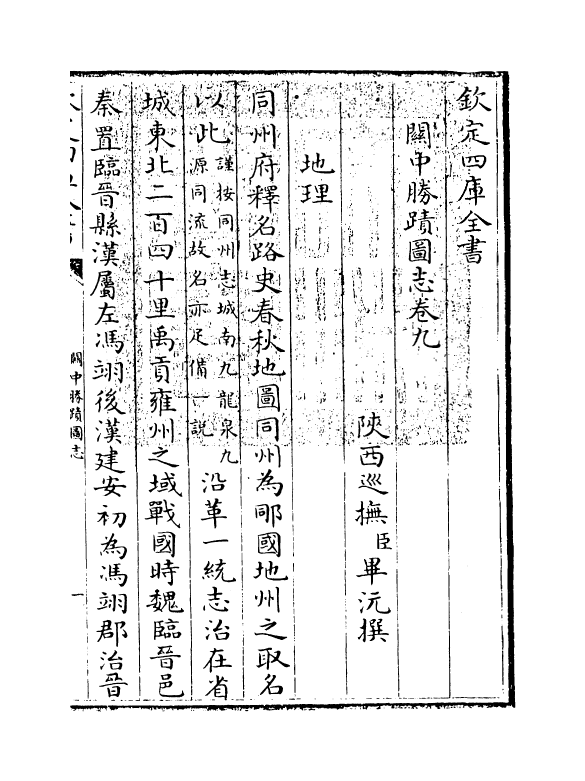 欽定四庫全書
關中勝蹟圖志卷九
陝西巡撫臣畢沅撰
地理
同州府釋名路史春秋地圖同州為郮國地州之取名
以此謹按同州志城南九龍泉九源同流故名亦足備一説沿革一統志治在省
城東北二百四十里禹貢雍州之域戰國時魏臨晉邑
秦置臨晉縣漢屬左馮翊後漢建安初為馮翊郡治晉
關中勝蹟圖志
一